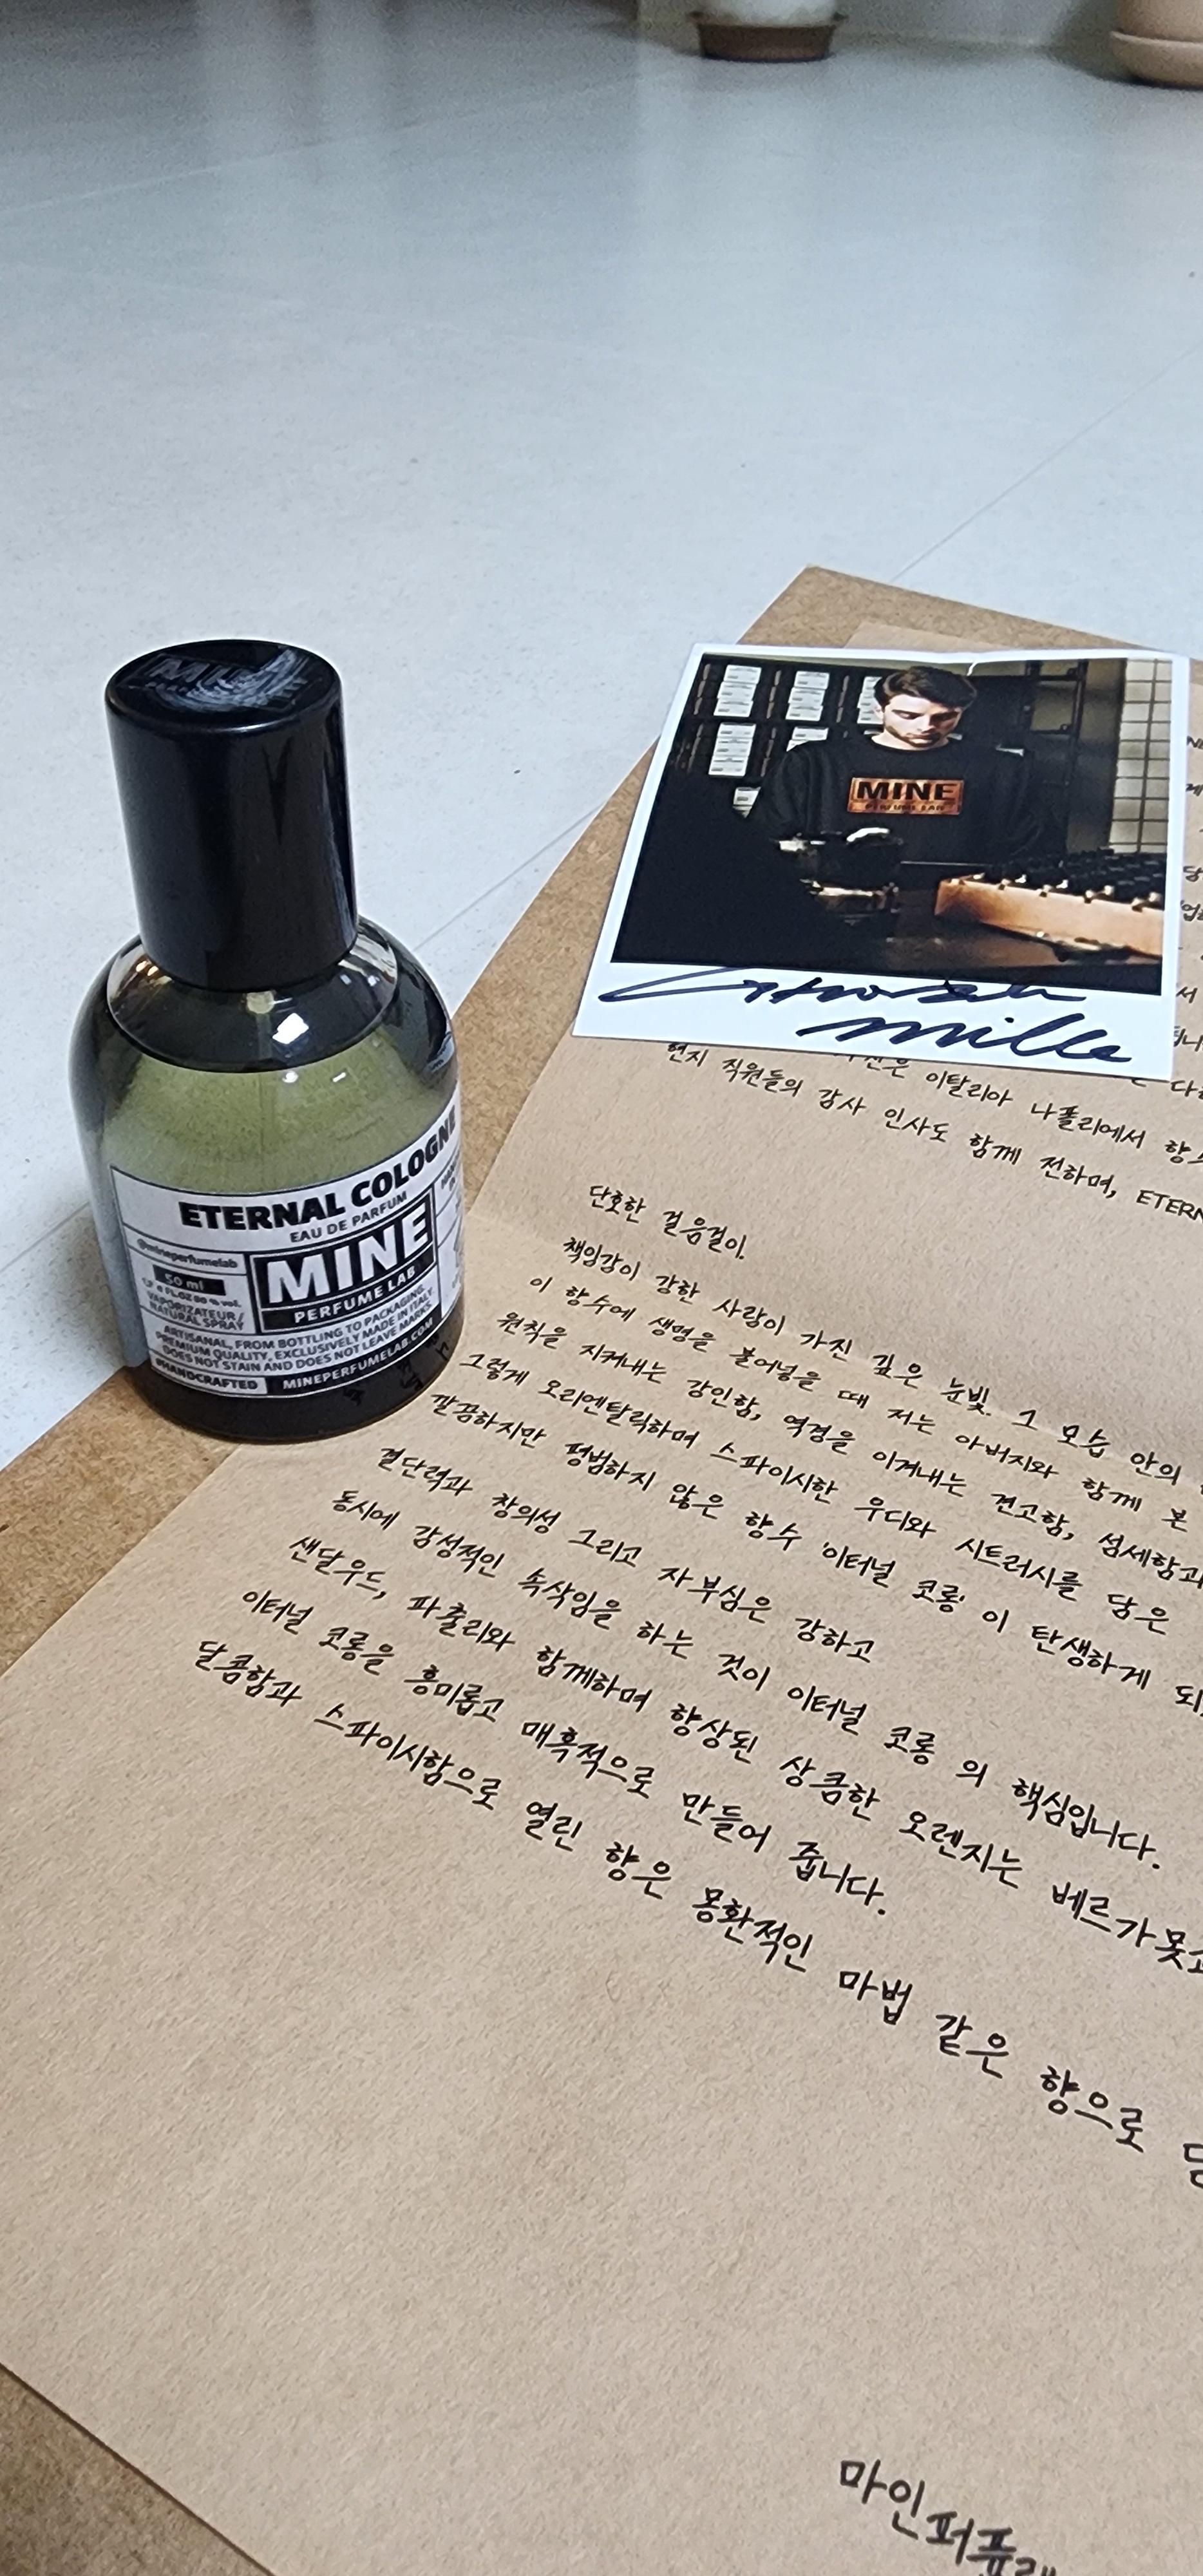 ETERNAL COLOGNE
EAU DE PARFUM
@mineperfumelab
50 ml
MINE
PERFUME LAB
VAPORIZATEUR/
NATURAL SPRAY
ARTISANAL, FROM BOTTLING TO PACKAGING,
PREMIUM QUALITY, EXCLUSIVELY MADE IN ITALY
DOES NOT STAIN AND DOES NOT LEAVE MARKS.
#HANDCRAFTED
MINEPERFUMELAB.COM
MINE
PERFUME LAB
이탈리아 나폴리에서
현지 직원들의 감사 인사도 함께 전하며,
단호한 걸음걸이.
책임감이 강한 사람이 가진 깊은 눈빛. 그 모습 안의
이 향수에 생명을 불어넣을 때 저는 아버지와 함께 본
원칙을 지켜내는 강인함, 역경을 이겨내는 견고함,
그렇게 오리엔탈릭하며 스파이시한 우디와 시트러시를 담은
깔끔하지만 평범하지 않은 향수 '이터널 코롱' 이 탄생하게
결단력과 창의성 그리고 자부심은 강하고
동시에 감성적인 속삭임을 하는 것이 이터널 코롱 의 핵심입니다.
샌달우드, 파출리와 함께하며 향상된 상큼한 오렌지는
이터널 코롱을 흥미롭고 매혹적으로 만들어 줍니다.
달콤함과 스파이시함으로 열린 향은 몽환적인 마법 같은 향으로
마인퍼퓸